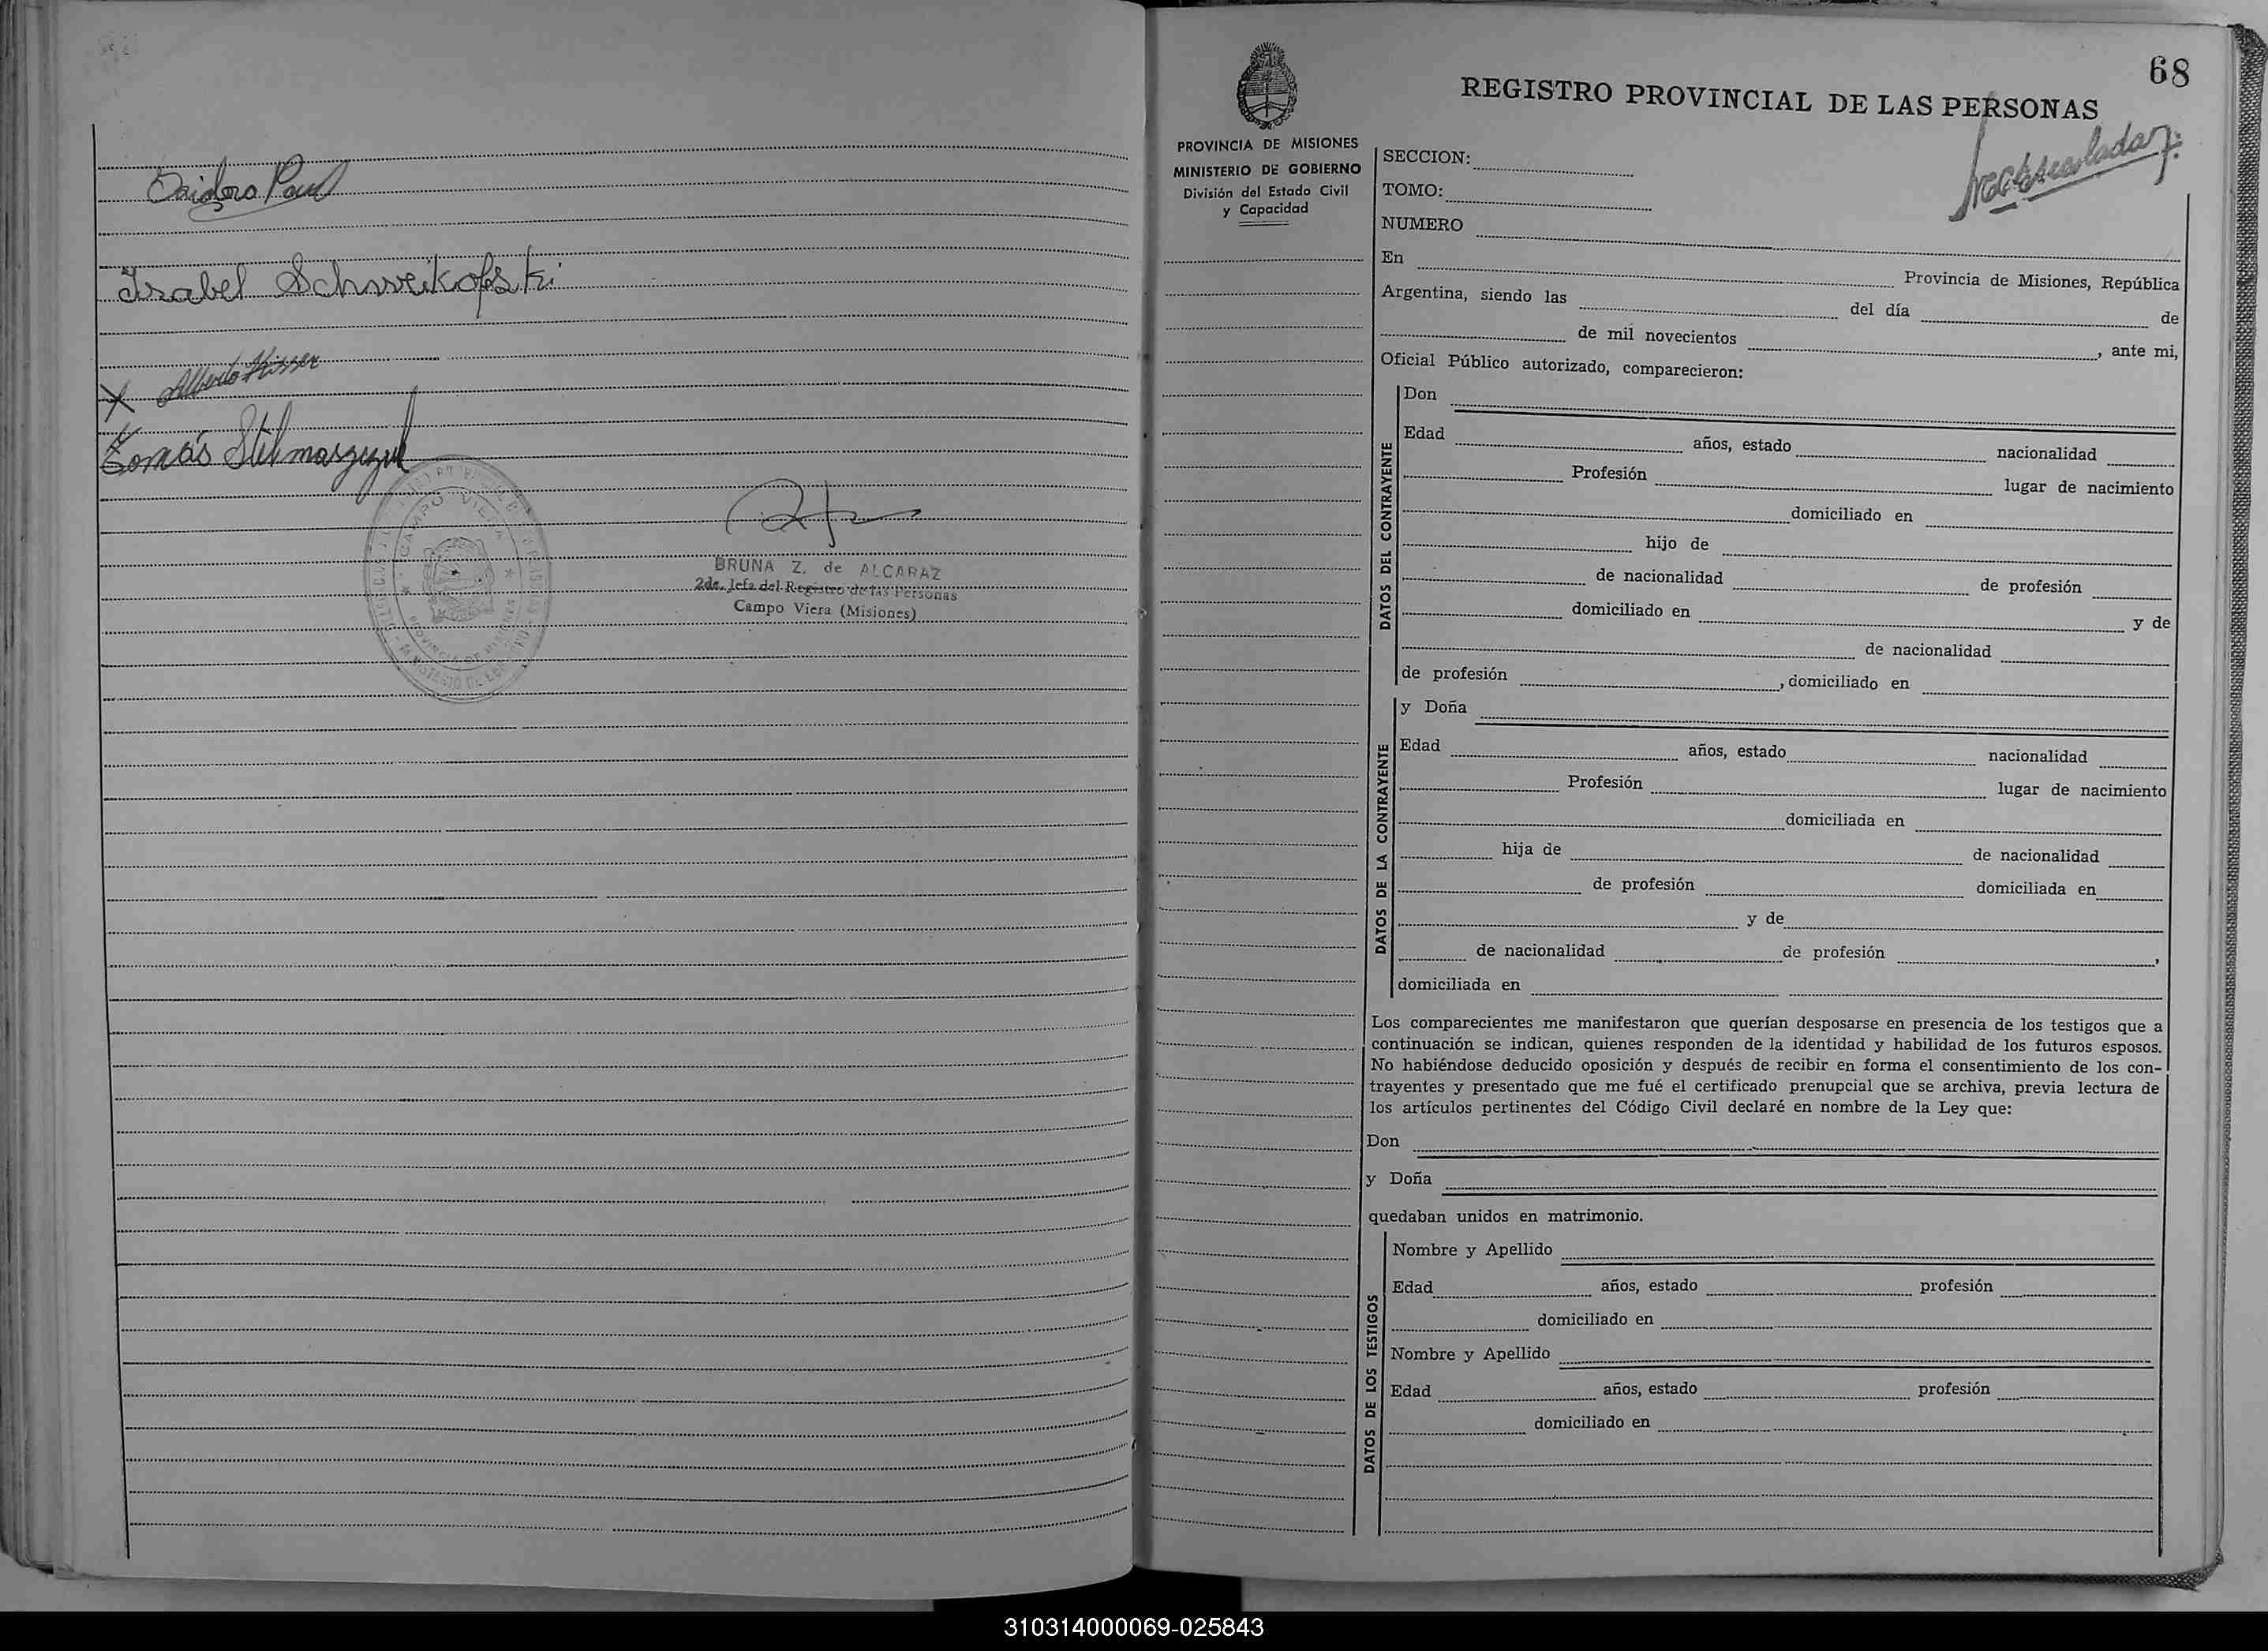 Isidoro Paul
Isabel Schweikofski
X Alberto Kisser
Tomás
CAMPO VIERA
PROVINCIA DE MISIONES
BRUNA Z. de ALCARAZ
2da. Jefa del Registro de las Personas
Campo Viera (Misiones)
68
REGISTRO PROVINCIAL DE LAS PERSONAS
PROVINCIA DE MISIONES
MINISTERIO DE GOBIERNO
División del Estado Civil
y Capacidad
SECCION:
TOMO:
NUMERO
En Provincia de Misiones, República
Argentina, siendo las del día de
de mil novecientos , ante mi,
Oficial Público autorizado, comparecieron:
DATOS DEL CONTRAYENTE
Don
Edad años, estado nacionalidad
Profesión lugar de nacimiento
domiciliado en
hijo de
de nacionalidad de profesión
domiciliado en y de
de nacionalidad
de profesión , domiciliado en
DATOS DE LA CONTRAYENTE
y Doña
Edad años, estado nacionalidad
Profesión lugar de nacimiento
domiciliada en
hija de de nacionalidad
de profesión domiciliada en
y de
de nacionalidad de profesión ,
domiciliada en
Los comparecientes me manifestaron que querían desposarse en presencia de los testigos que a
continuación se indican, quienes responden de la identidad y habilidad de los futuros esposos.
No habiéndose deducido oposición y después de recibir en forma el consentimiento de los con-
trayentes y presentado que me fué el certificado prenupcial que se archiva, previa lectura de
los artículos pertinentes del Código Civil declaré en nombre de la Ley que:
Don
y Doña
quedaban unidos en matrimonio.
DATOS DE LOS TESTIGOS
Nombre y Apellido
Edad años, estado profesión
domiciliado en
Nombre y Apellido
Edad años, estado profesión
domiciliado en
310314000069-025843